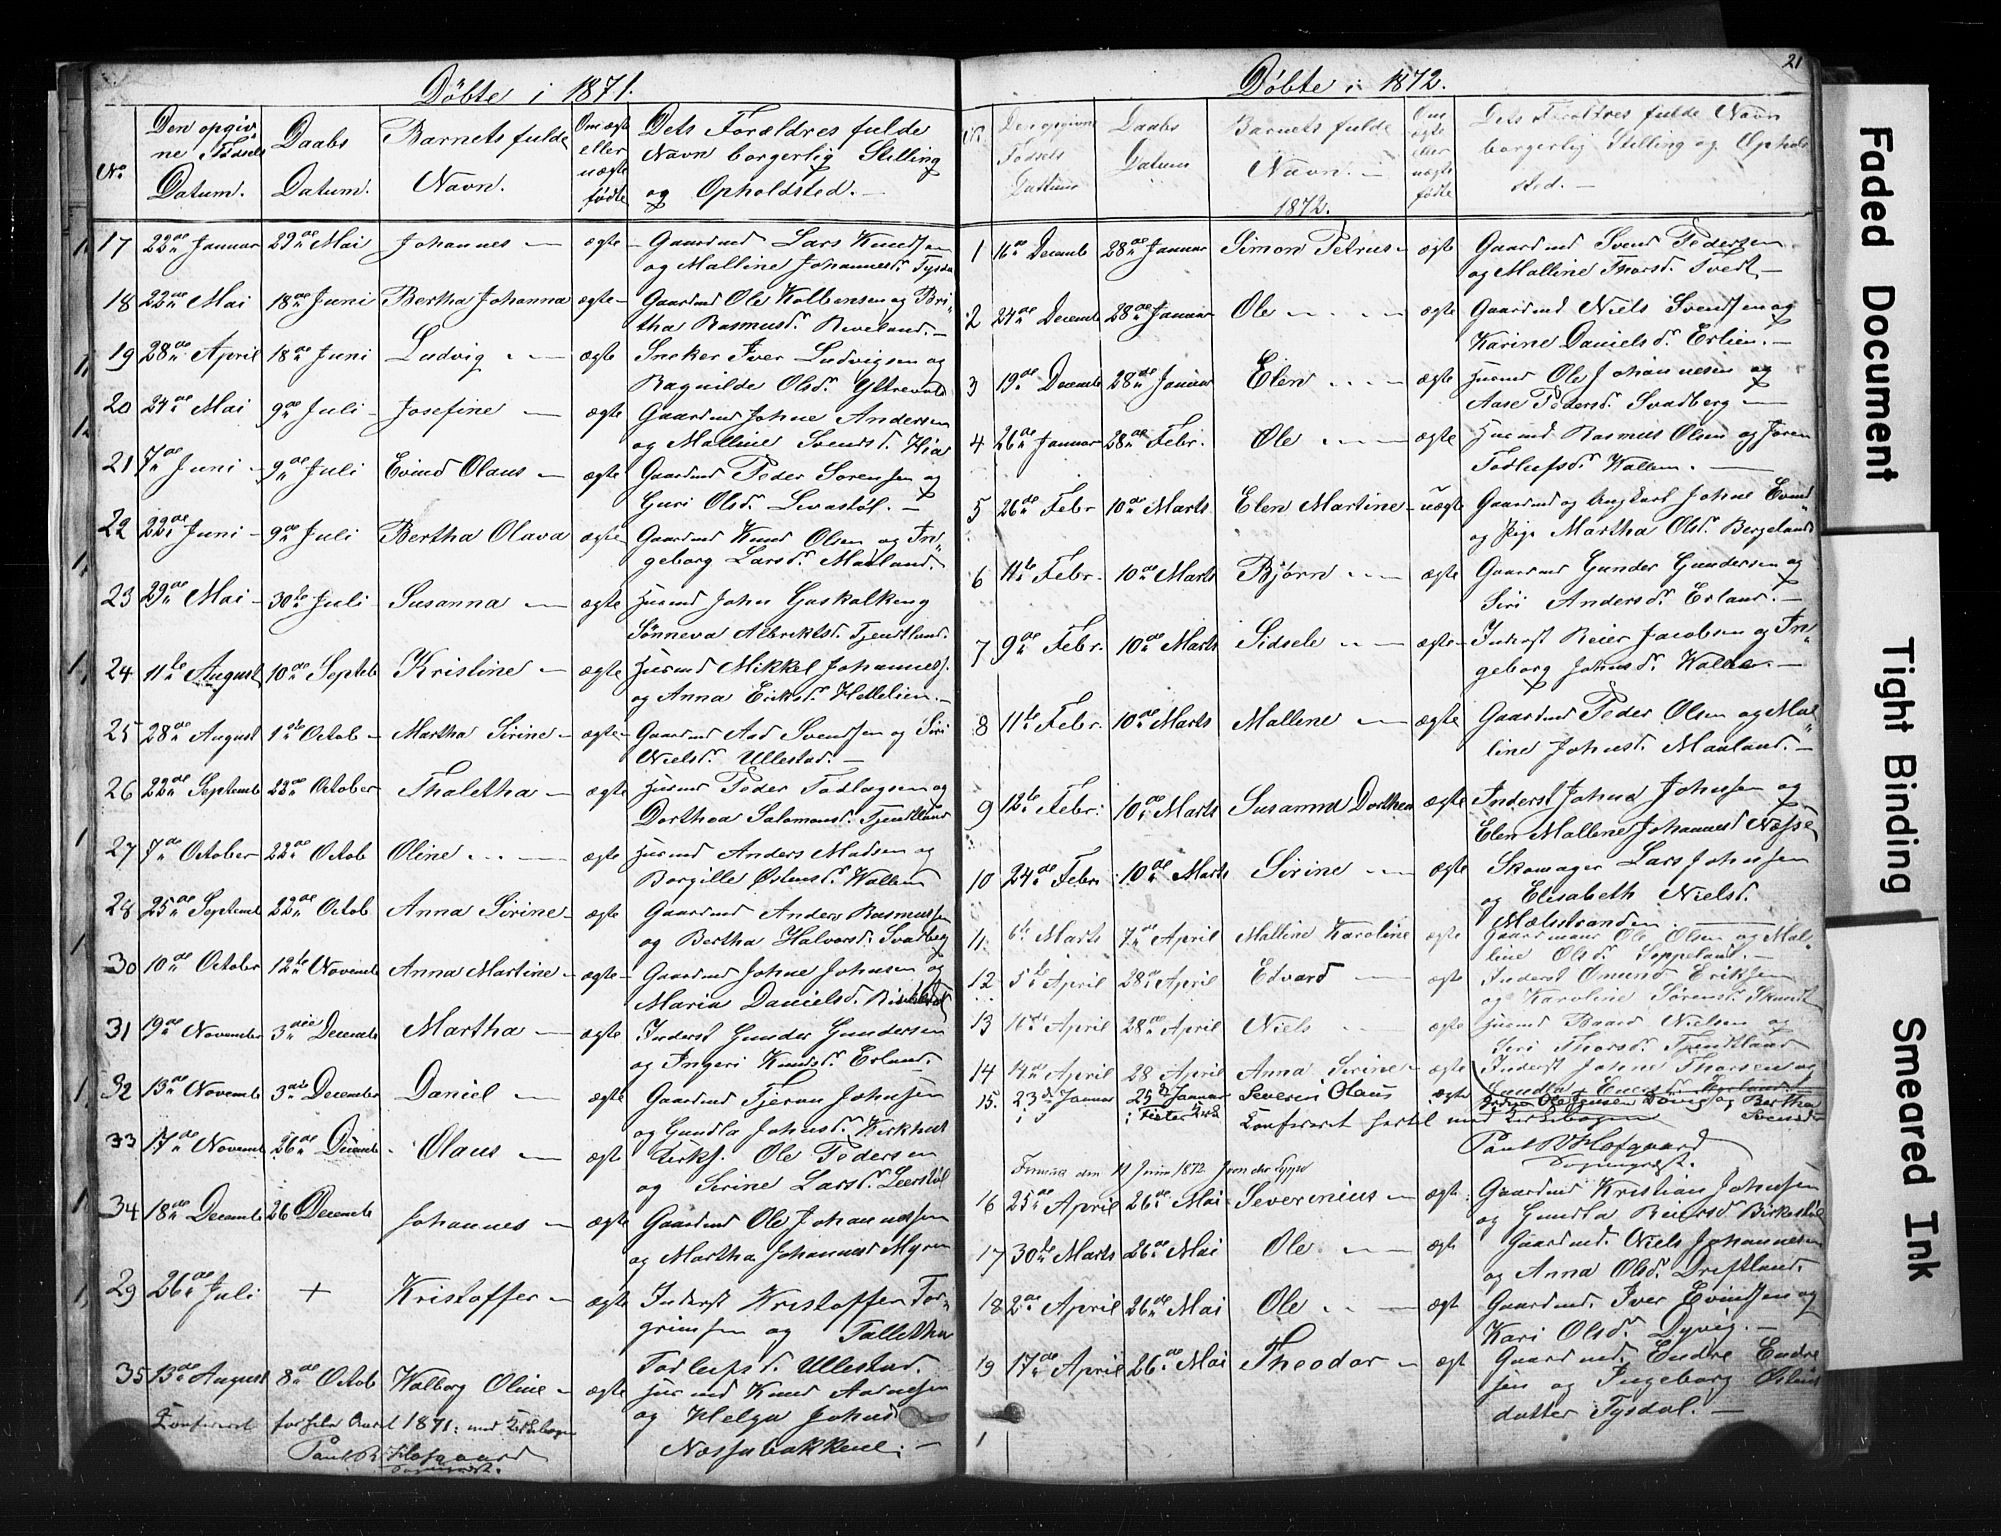 Döbte i 1871.
No.
Den opgivne Fødsels Datum.
Daabs Datum.
Barnets fulde Navn.
Om ægte eller uægte fødte
Dets Forældres fulde Navn borgerlig Stilling og Opholdsted.
17 22de Januar 29de Mai Johannes ægte Gaardmd Lars Knudsen
og Malline Johannesd.
18 22de Mai 18de Juni Bertha Johanna ægte Gaardmd Ole Kolbensen og Bri-
tha Rasmusd. Reveland.
19 28de April 18de Juni Ludvig ægte Sneker Iver Ludvigsen og
Ragnilde Olsd.
20 24de Mai 9de Juli Josefine ægte Gaardmd Johne Andersen
og Malline Svendsd. Hia
21 7de Juni 9de Juli Evind Olaus ægte Gaardmd Peder Sorensen og
Guri Olsd.
22 22de Juni 9de Juli Bertha Olava ægte Gaardmd Knud Olsen og In-
geborg Larsd. Maaland.
23 29de Mai 30te Juli Susanna ægte Husmd John
Sönneva Albriktsd. Tjendtland.
24 11te August 10de Septeb Kristine ægte Husmd Mikkel Johannes.
og Anna Eriksd. Hettelien.
25 28de August 1ste Octob Martha Sirine ægte Gaardmd Aad Svendsen og Siri
Nielsd. Ullestad.
26 22de Septemb 22de October Thaletha ægte Husmd Peder Todlagsen og
Dorthea Salomonsd. Tjendtland
27 7de October 22de Octob Oline ægte Husmd Anders Madsen og
Borgille Østensd. Kallem
28 25de Septemb 22de Octob Anna Sirine ægte Gaardmd Anders Rasmussen
og Bertha Halvorsd. Svadberg
30 10de October 12te Novemb Anna Martine ægte Gaardmd Johne Johnsen og
Maria Danielsd.
31 19de November 3die Decemb Martha ægte Inderst Gunder Gundersen
og Ingeri Knudsd. Erland.
32 13de Novemb 3die December Daniel ægte Gaardmd Tjeran Johnsen
og Gundla Johnsd. Kirkhus
33 17de Novemb 26de Decemb Olaus ægt Kirks. Ole Pedersen
og Sirine Larsd.
34 18de Decemb 26 Decemb Johannes ægte Gaardmd Ole Johannessen
og Martha Johannesd Myren
29 26de Juli + Kristoffer ægte Inderst Kristoffer Tor-
grimsen og Tallethea
Todleifsd. Ullestad.
35 13de August 8de Octob Walborg Oline ægte Husmd Knud Aadnesen
og Helga Johnsd
Næssabakkene.
Konfereret for hele Aaret 1871: med Kirkebogen
Paul B. Hofgaard
Sogneprest.
21
Döbte i 1872.
No.
Den opgivne Fødsels Datum
Daabs Datum
Barnets fulde Navn.
1872.
Om ægte eller uægte fødte
Dets Forældres fulde Navn borgerlig Stilling og Opholdsted.
1 16de Decemb 28de Januar Simon Petrus ægte Gaardmd Svend Pedersen
og Malline Thorsd. Tvedt
2 24de Decemb 28de Januar Ole ægte Gaardmd Niels Svendsen og
Karine Danielsd. Erlien.
3 19de Decemb 28de Januar Elen ægte Husmd Ole Johannesen og
Aase Pedersd. Svadberg
4 26de Januar 28de Febr. Ole ægte Husmd. Rasmus Olsen og Joren
Todleifsd. Kallem.
5 26de Febr 10de Marts Elen Martine uægte Gaardmd og Ungkarl Johne Evind
og Pige Martha Olsd. Bergeland
6 11te Febr. 10de Marts Bjørn ægte Gaardmd Gunder Gundersen og
Siri Andersd. Erland.
7 9de Febr. 10de Marts Sidsele ægte Inderst Reier Jacobsen og In-
geborg Johnsd.
8 11te Febr. 10de Marts Mallene ægte Gaardmd Peder Olsen og Mal-
line Johnsd. Maaland.
9 12te Febr. 10de Marts Susanna Dorthea ægte Inderst Johne Johnsen og
Elen Mallene Johannesd Næsse
10 24de Febr. 10de Marts Sirine ægte Skomager Lars Johnsen
og Elisabeth Nielsd.
Mælsstranden
11 6te Marts 7de April Malline Karoline ægte Gaardmand Ole Olsen og Mal-
line Olsd. Seppeland.
12 5te April 28de April Edvard ægt Inderst Omund Eriksen
og Karoline Sørensd.
13 April 28de April Niels ægte Husmd Baard Nielsen og
Siri Thorsd. Tjendtland
14 14de April 28 April Anna Sirine ægt Inderst Johne Thorsen og
15. 23d Januar 25d Januar Severin Olaus ægte og Bertha
Svensd.
Konfereret hertil med Kirkebogen
Paul B Hofgaard
Sogneprest.
den 11 Juni 1872
16 25de April 26de Mai Severinius ægt Gaardmd Kristian Johnsen
og Gundla Reiersd. Birkestøl
17 30te Marts 26de Mai Ole ægt Gaardmd. Niels Johannesen
og Anna Olsd. Driftland.
18 2de April 26de Mai Ole ægt Gaardmd. Iver Evindsen og
Kari Olsd. Dyvig.
19 17de April 26de Mai Theodor ægt Gaardmd. Endre Endre
sen og Ingeborg
datter Tysdal.
Faded Document
Tight Binding
Smeared Ink